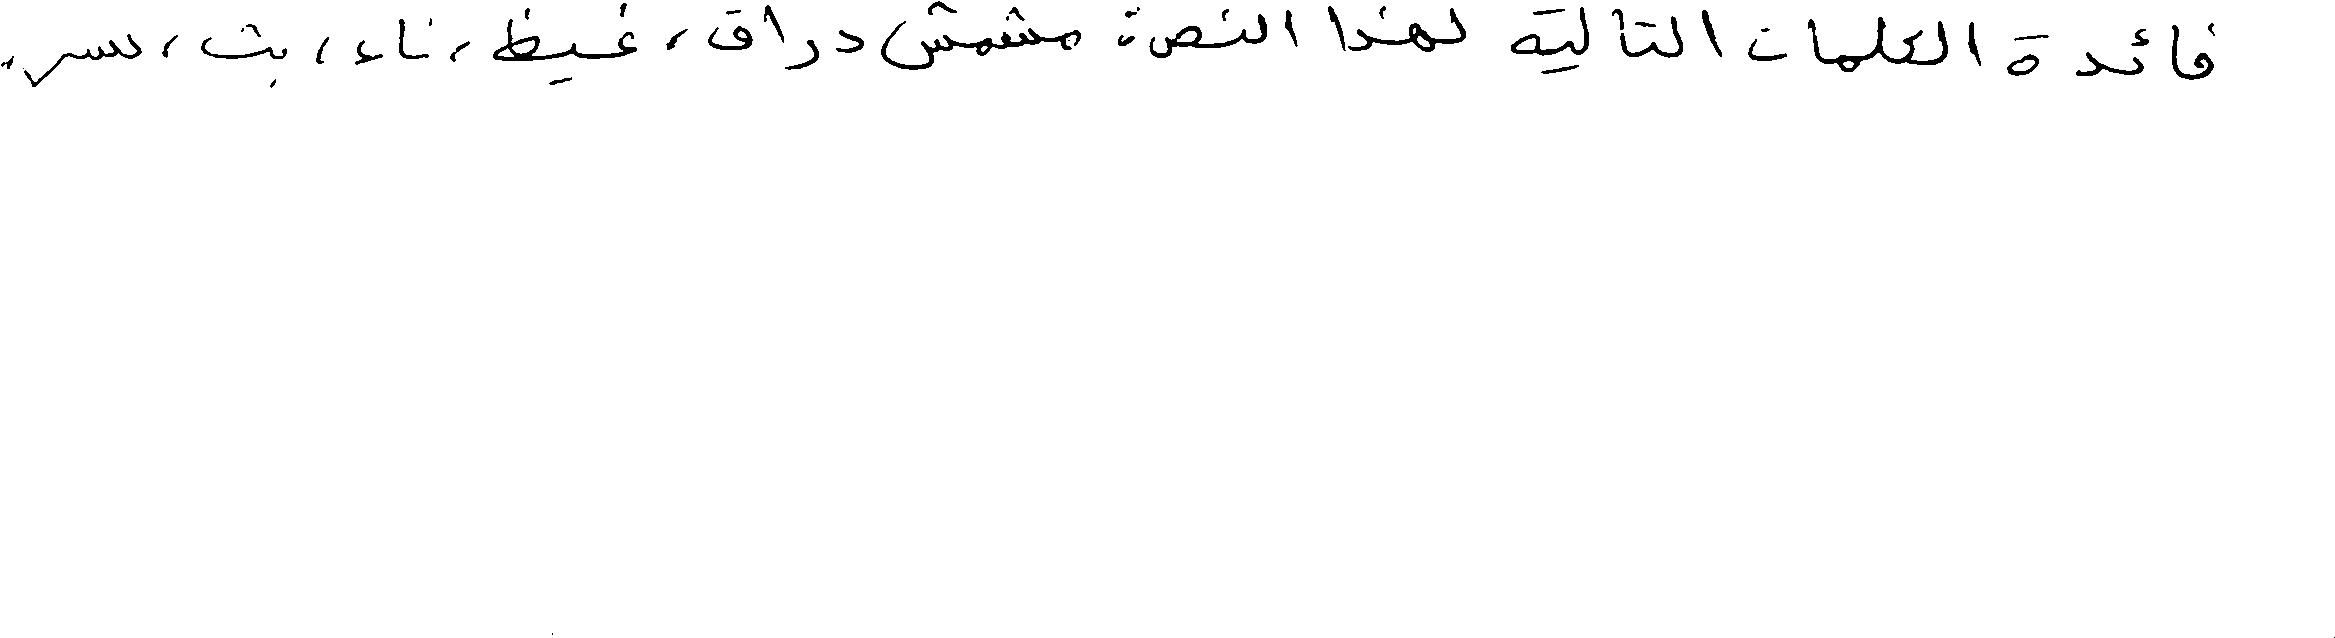 فائدة الكلمات التالية لهذا النص: مشمش دراق، غيظ، ناء، بث، سر.